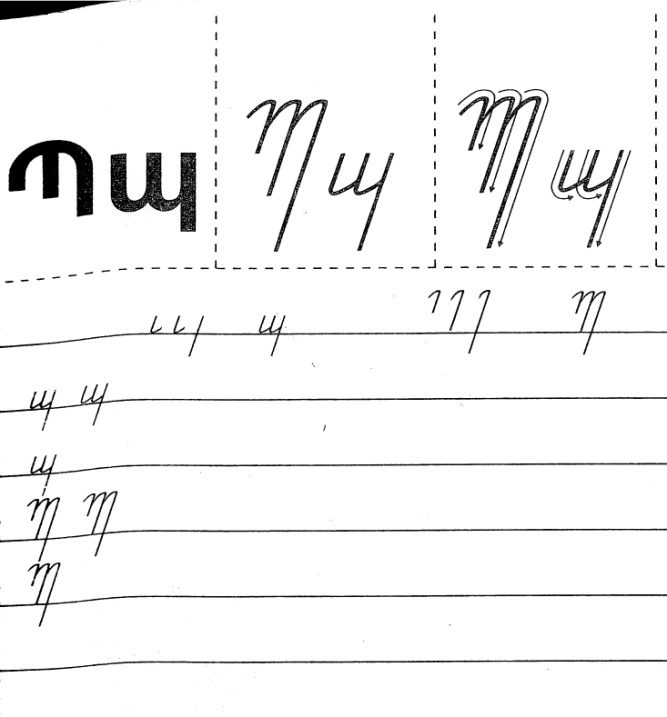 Պպ Պպ Պպ
պ Պ
պ պ
պ
Պ Պ
Պ